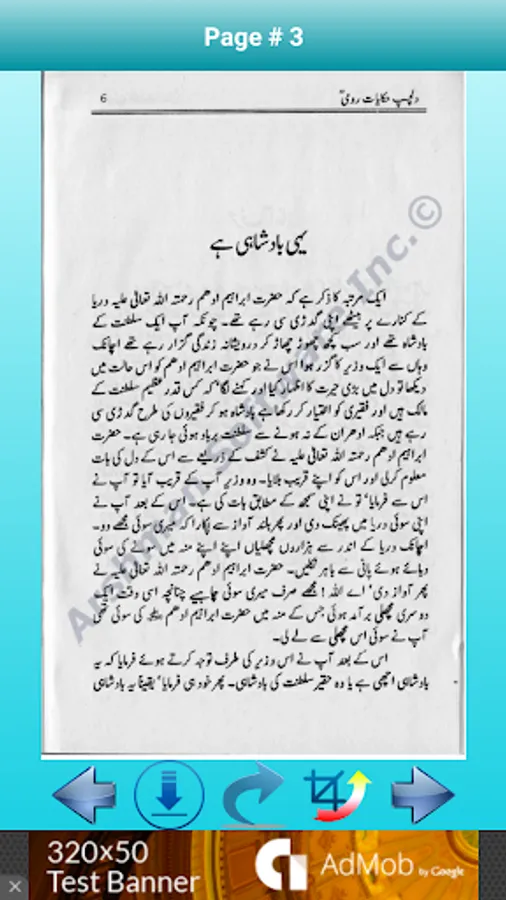 Page # 3
دلچسپ حکایات رومیؒ
6
یہی بادشاہی ہے
ایک مرتبہ کا ذکر ہے کہ حضرت ابراہیم ادھم رحمتہ اللہ تعالیٰ علیہ دریا
کے کنارے پر بیٹھے اپنی گدڑی سی رہے تھے۔ چونکہ آپ ایک سلطنت کے
بادشاہ تھے اور سب کچھ چھوڑ چھاڑ کر درویشانہ زندگی گزار رہے تھے اچانک
وہاں سے ایک وزیر کا گزر ہوا اس نے جو حضرت ابراہیم ادھم کو اس حالت میں
دیکھا تو دل میں بڑی حیرت کا اظہار کیا اور کہنے لگا' کہ کس قدر عظیم سلطنت کے
مالک ہیں اور فقیری کو اختیار کر رکھا ہے بادشاہ ہو کر فقیروں کی طرح گدڑی سی
رہے ہیں جبکہ ادھر ان کے نہ ہونے سے سلطنت برباد ہوئی جا رہی ہے۔ حضرت
ابراہیم ادھم رحمتہ اللہ تعالیٰ علیہ نے کشف کے ذریعے سے اس کے دل کی بات
معلوم کرلی اور اس کو اپنے قریب بلایا۔ وہ وزیر آپ کے قریب آیا تو آپ نے
اس سے فرمایا' تو نے اپنی سمجھ کے مطابق بات کی ہے۔ اس کے بعد آپ نے
اپنی سوئی دریا میں پھینک دی اور پھر بلند آواز سے پکارا کہ میری سوئی مجھے دو۔
اچانک دریا کے اندر سے ہزاروں مچھلیاں اپنے اپنے منہ میں سونے کی سوئی
دبائے ہوئے پانی سے باہر نکلیں۔ حضرت ابراہیم ادھم رحمتہ اللہ تعالیٰ علیہ نے
پھر آواز دی' اے اللہ! مجھے صرف میری سوئی چاہیے چنانچہ اسی وقت ایک
دوسری مچھلی برآمد ہوئی جس کے منہ میں حضرت ابراہیم ادھم کی سوئی تھی
آپ نے سوئی اس مچھلی سے لے لی۔
اس کے بعد آپ نے اس وزیر کی طرف توجہ کرتے ہوئے فرمایا کہ یہ
بادشاہی اچھی ہے یا وہ حقیر سلطنت کی بادشاہی۔ پھر خود ہی فرمایا' یقیناً یہ بادشاہی
Inc.©
320×50
Test Banner
AdMob by Google